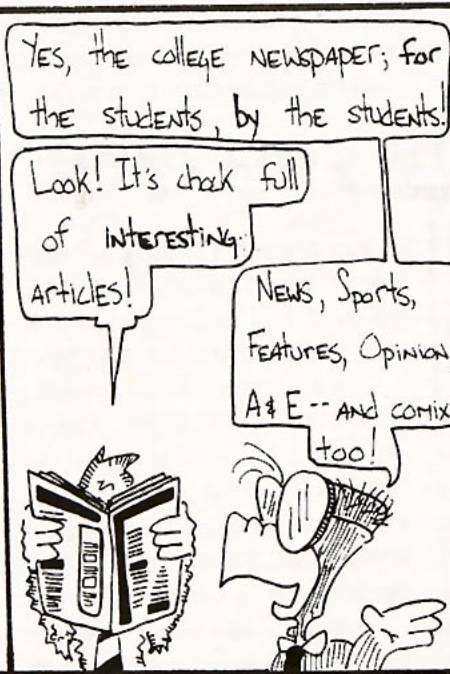 YES, tHE collEgE NEWSPAPER; for
tHE studENts, by tHE studENts!
Look! It's chock full
of INtERESTING
ARticlES!
NEWS, Sports,
FEAtURES, OpiNiON
A & E -- ANd COMIX
too!